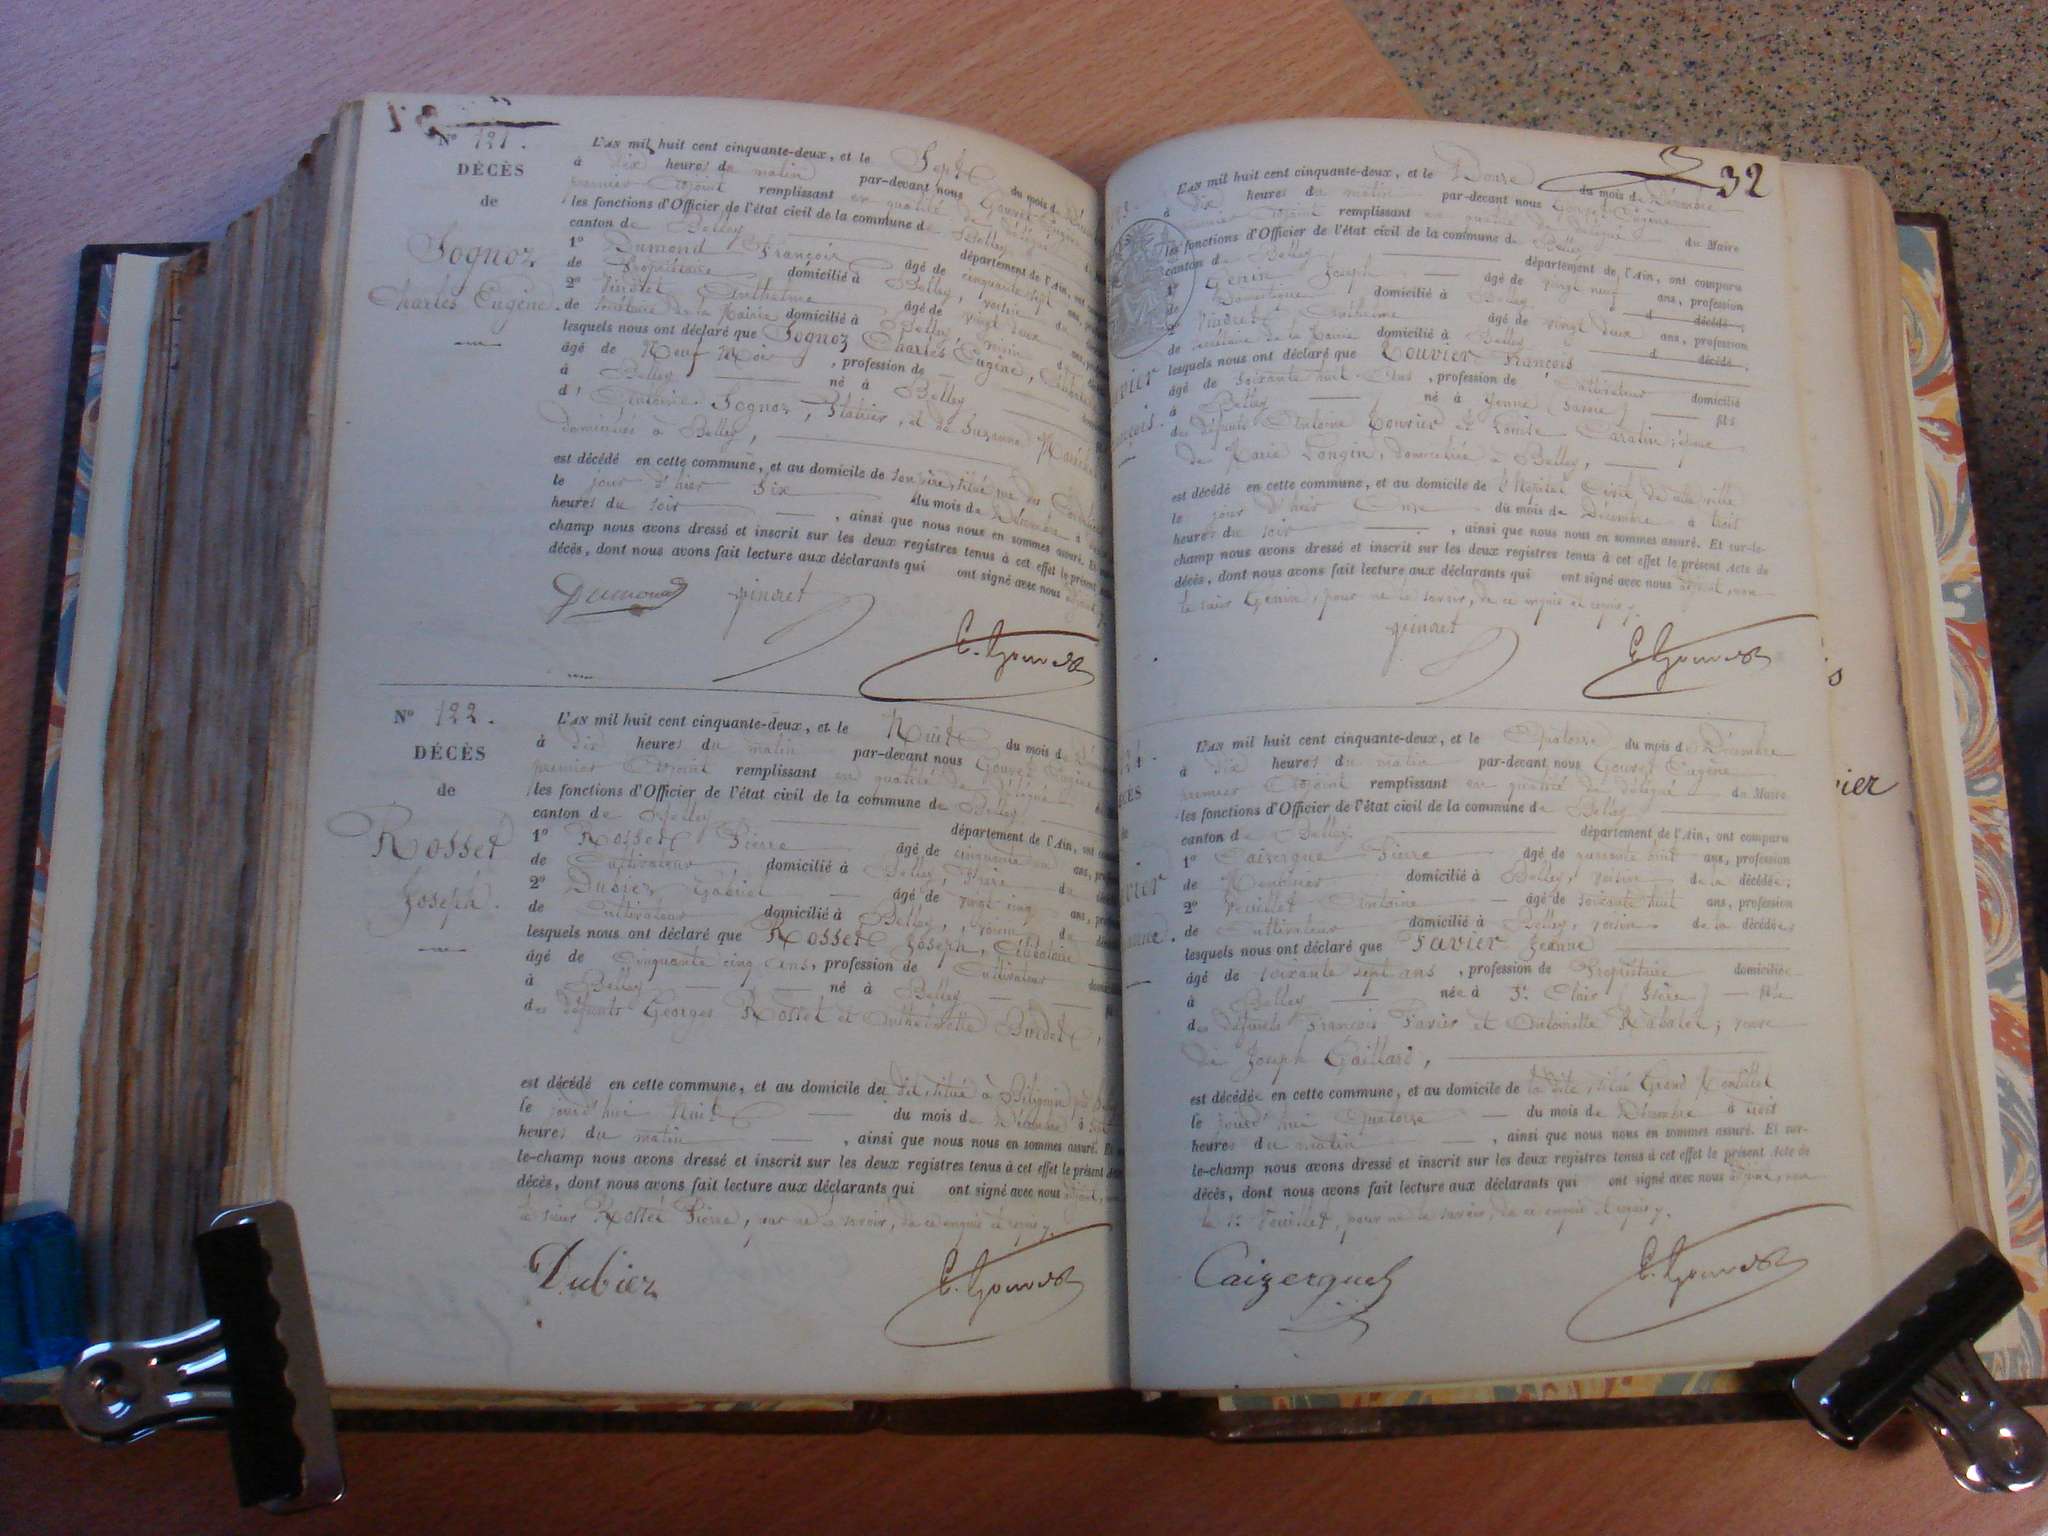 Nº 121.
DÉCÈS
de
Sognoz
Charles Eugène.
L'AN mil huit cent cinquante-deux, et le Sept du mois de
à dix heures du matin par-devant nous Gouvet Eugène
premier Adjoint remplissant en qualité de délégué
les fonctions d'Officier de l'état civil de la commune de Belley
canton de Belley département de l'Ain, ont
1º Dumond François âgé de cinquante sept
de Propriétaire domicilié à Belley, voisin
2º Vindret Anthelme âgé de vingt deux ans,
de secrétaire de la Mairie domicilié à Belley, voisin
lesquels nous ont déclaré que Sognoz Charles Eugène,
âgé de Neuf Mois, profession de
à Belley né à Belley
d'Antoine Sognoz, Platrier, et de Suzanne
domiciliés à Belley,
est décédé en cette commune, et au domicile de son père, situé rue du
le jour d'hier Six du mois de Décembre à
heures du soir, ainsi que nous nous en sommes assuré. Et
champ nous avons dressé et inscrit sur les deux registres tenus à cet effet le présent
décès, dont nous avons fait lecture aux déclarants qui ont signé avec nous adjoint.
Dumond vindret
E. Gouvet
Nº 122.
DÉCÈS
de
Rosset
Joseph.
L'AN mil huit cent cinquante-deux, et le Huit du mois de
à dix heures du matin par-devant nous Gouvet Eugène
premier Adjoint remplissant en qualité de délégué
les fonctions d'Officier de l'état civil de la commune de Belley
canton de Belley département de l'Ain, ont
1º Rosset Pierre âgé de cinquante un ans,
de Cultivateur domicilié à Belley, frère du
2º Dubiez Gabriel âgé de vingt cinq ans,
de Cultivateur domicilié à Belley, voisin du
lesquels nous ont déclaré que Rosset Joseph, Célibataire
âgé de Cinquante cinq ans, profession de Cultivateur
à Belley né à Belley
des défunts Georges Rosset et Anthelmette Burdet,
est décédé en cette commune, et au domicile du dit, situé à Billignin
le jourd'hui Huit du mois de Décembre à
heures du matin, ainsi que nous nous en sommes assuré. Et
le-champ nous avons dressé et inscrit sur les deux registres tenus à cet effet le présent
décès, dont nous avons fait lecture aux déclarants qui ont signé avec nous adjoint, non
le sieur Rosset Pierre, pour ne le savoir, de ce enquis et requis.
Dubiez
E. Gouvet
32
L'AN mil huit cent cinquante-deux, et le Douze du mois de Décembre
à dix heures du matin par-devant nous Gouvet Eugène
premier Adjoint remplissant en qualité de délégué du Maire
les fonctions d'Officier de l'état civil de la commune de Belley
canton de Belley département de l'Ain, ont comparu
1º Genin Joseph âgé de vingt neuf ans, profession
de Domestique domicilié à Belley d décédé,
2º Vindret Anthelme âgé de vingt deux ans, profession
de secrétaire de la Mairie domicilié à Belley d décédé,
lesquels nous ont déclaré que Rouvier François
âgé de soixante huit ans, profession de Cultivateur domicilié
à Belley né à Yenne (Savoie) fils
des défunts Antoine Rouvier et Louise époux
de Marie Longin, domiciliée à Belley,
est décédé en cette commune, et au domicile de l'Hôpital Civil de la ville
le jour d'hier Onze du mois de Décembre à trois
heures du soir, ainsi que nous nous en sommes assuré. Et sur-le-
champ nous avons dressé et inscrit sur les deux registres tenus à cet effet le présent Acte de
décès, dont nous avons fait lecture aux déclarants qui ont signé avec nous adjoint, non
le sieur Genin, pour ne le savoir, de ce enquis et requis.
vindret
E. Gouvet
L'AN mil huit cent cinquante-deux, et le Quatorze du mois de Décembre
à dix heures du matin par-devant nous Gouvet Eugène
premier Adjoint remplissant en qualité de délégué du Maire
les fonctions d'Officier de l'état civil de la commune de Belley
canton de Belley département de l'Ain, ont comparu
1º Caizergue Pierre âgé de quarante huit ans, profession
de Menuisier domicilié à Belley, voisin de la décédée,
2º Veuillet Antoine âgé de soixante huit ans, profession
de Cultivateur domicilié à Belley, voisin de la décédée,
lesquels nous ont déclaré que Favier Jeanne
âgé de soixante sept ans, profession de Propriétaire domiciliée
à Belley née à St. Clair (Isère) fille
des défunts François Favier et Antoinette Rabatel; veuve
de Joseph Gaillard,
est décédée en cette commune, et au domicile de la dite, situé Grand
le jourd'hui Quatorze du mois de Décembre à trois
heures du matin, ainsi que nous nous en sommes assuré. Et sur-
le-champ nous avons dressé et inscrit sur les deux registres tenus à cet effet le présent Acte de
décès, dont nous avons fait lecture aux déclarants qui ont signé avec nous adjoint, non
le Sr. Veuillet, pour ne le savoir, de ce enquis et requis.
Caizergues
E. Gouvet